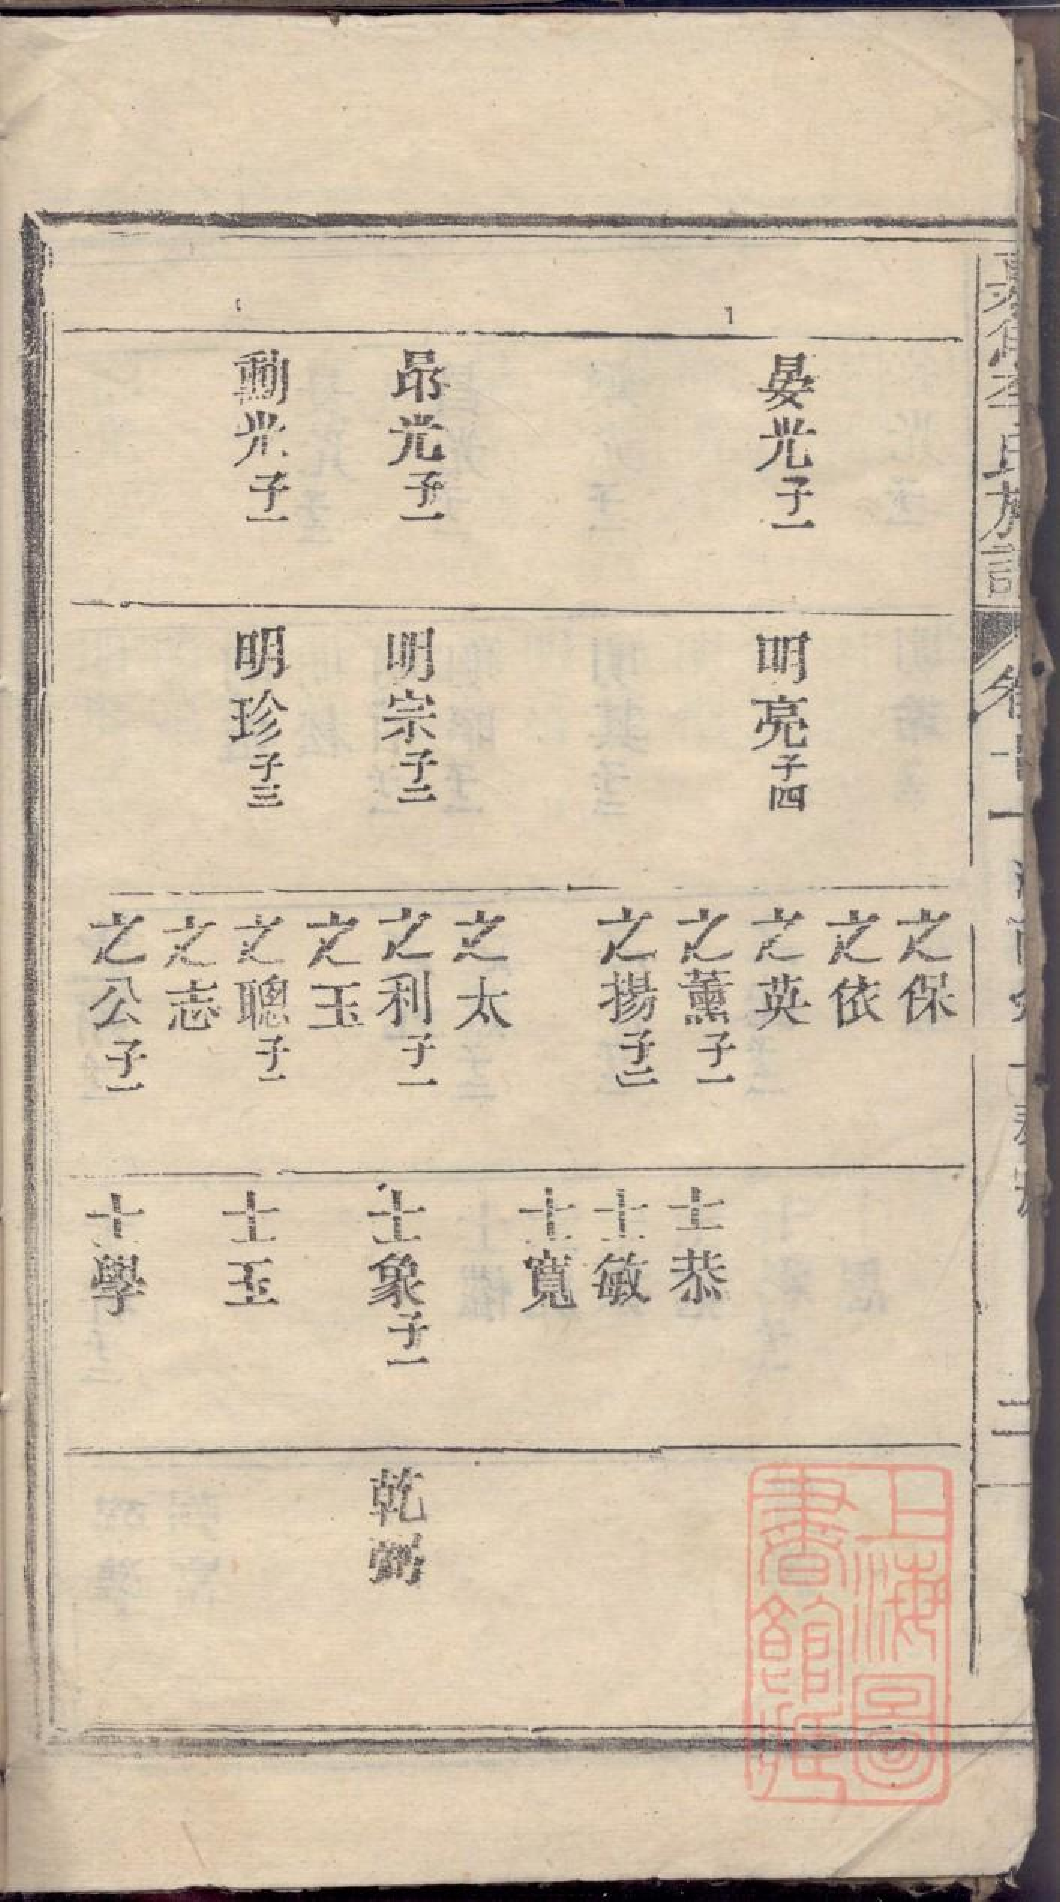 李氏族譜
卷十一
三
晏光子一
昂光子一
勳光子一
明亮子四
明宗子二
明珍子三
之保
之依
之英
之薰子一
之揚子二
之太
之利子一
之玉
之聰子一
之志
之公子一
士恭
士敏
士寬
士象子一
士玉
士學
乾弼
上海圖
書館藏